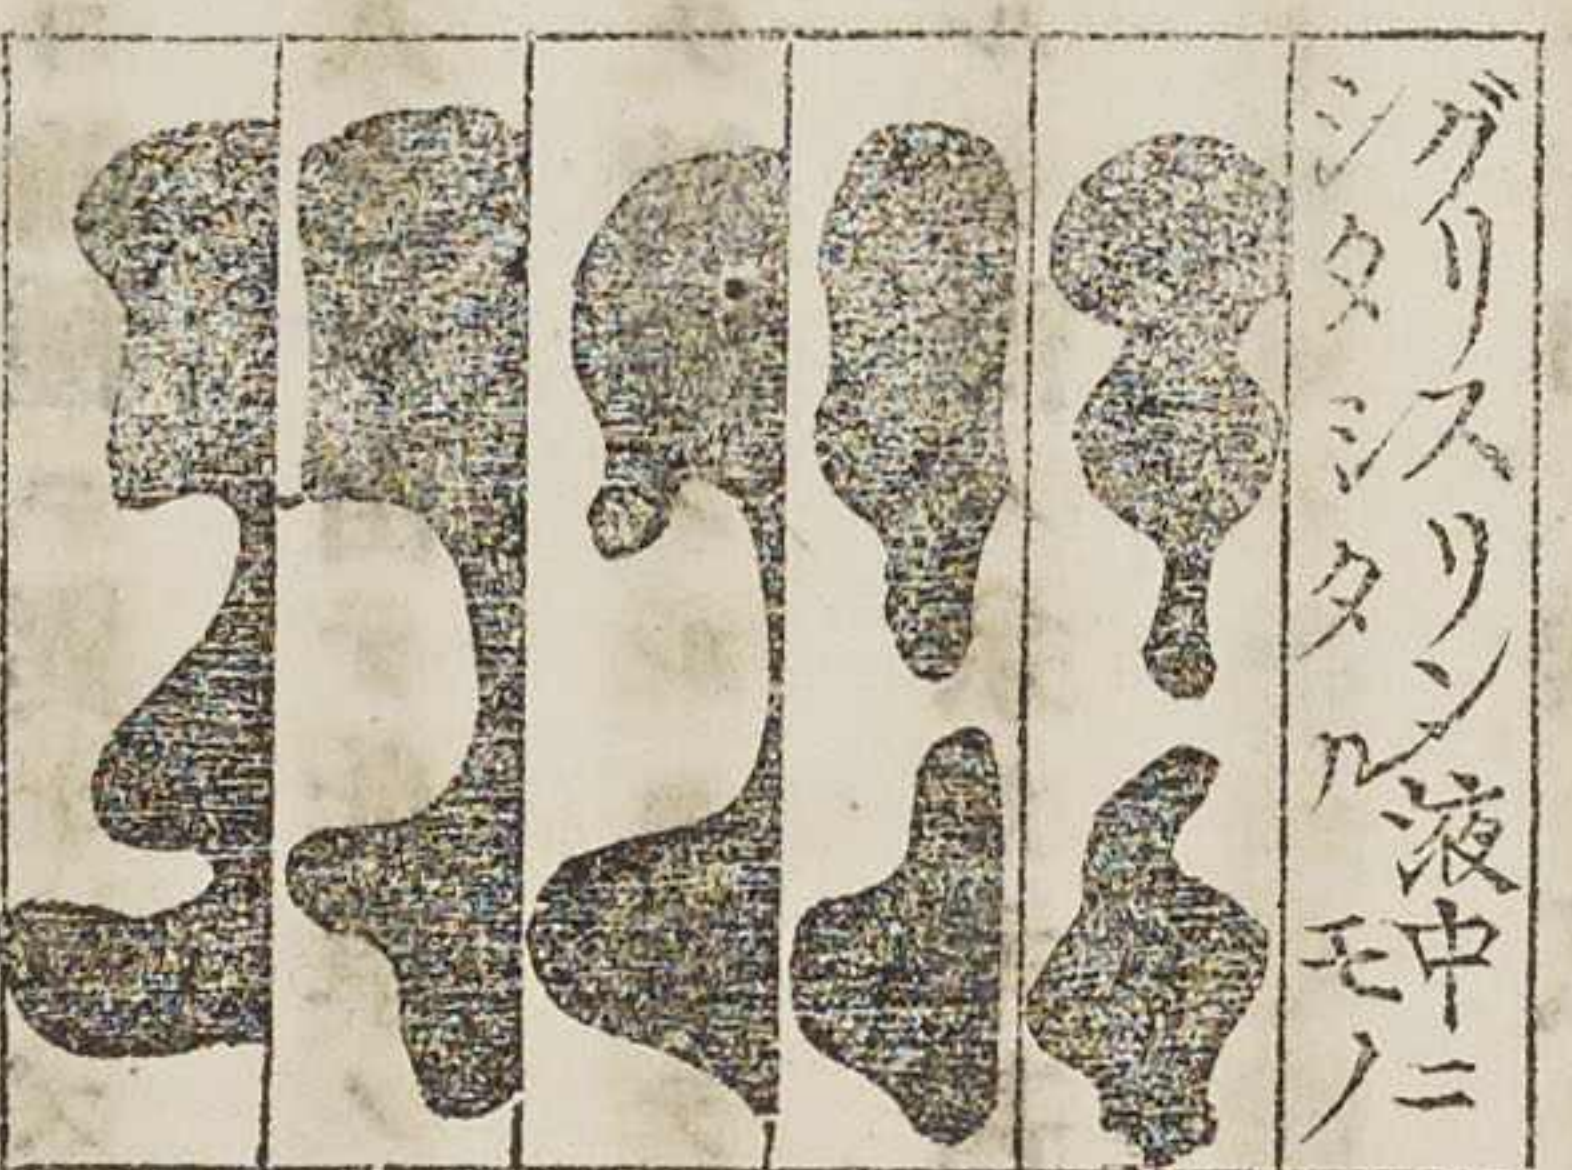 ガリスリン液中ニ
シタシタルモノ